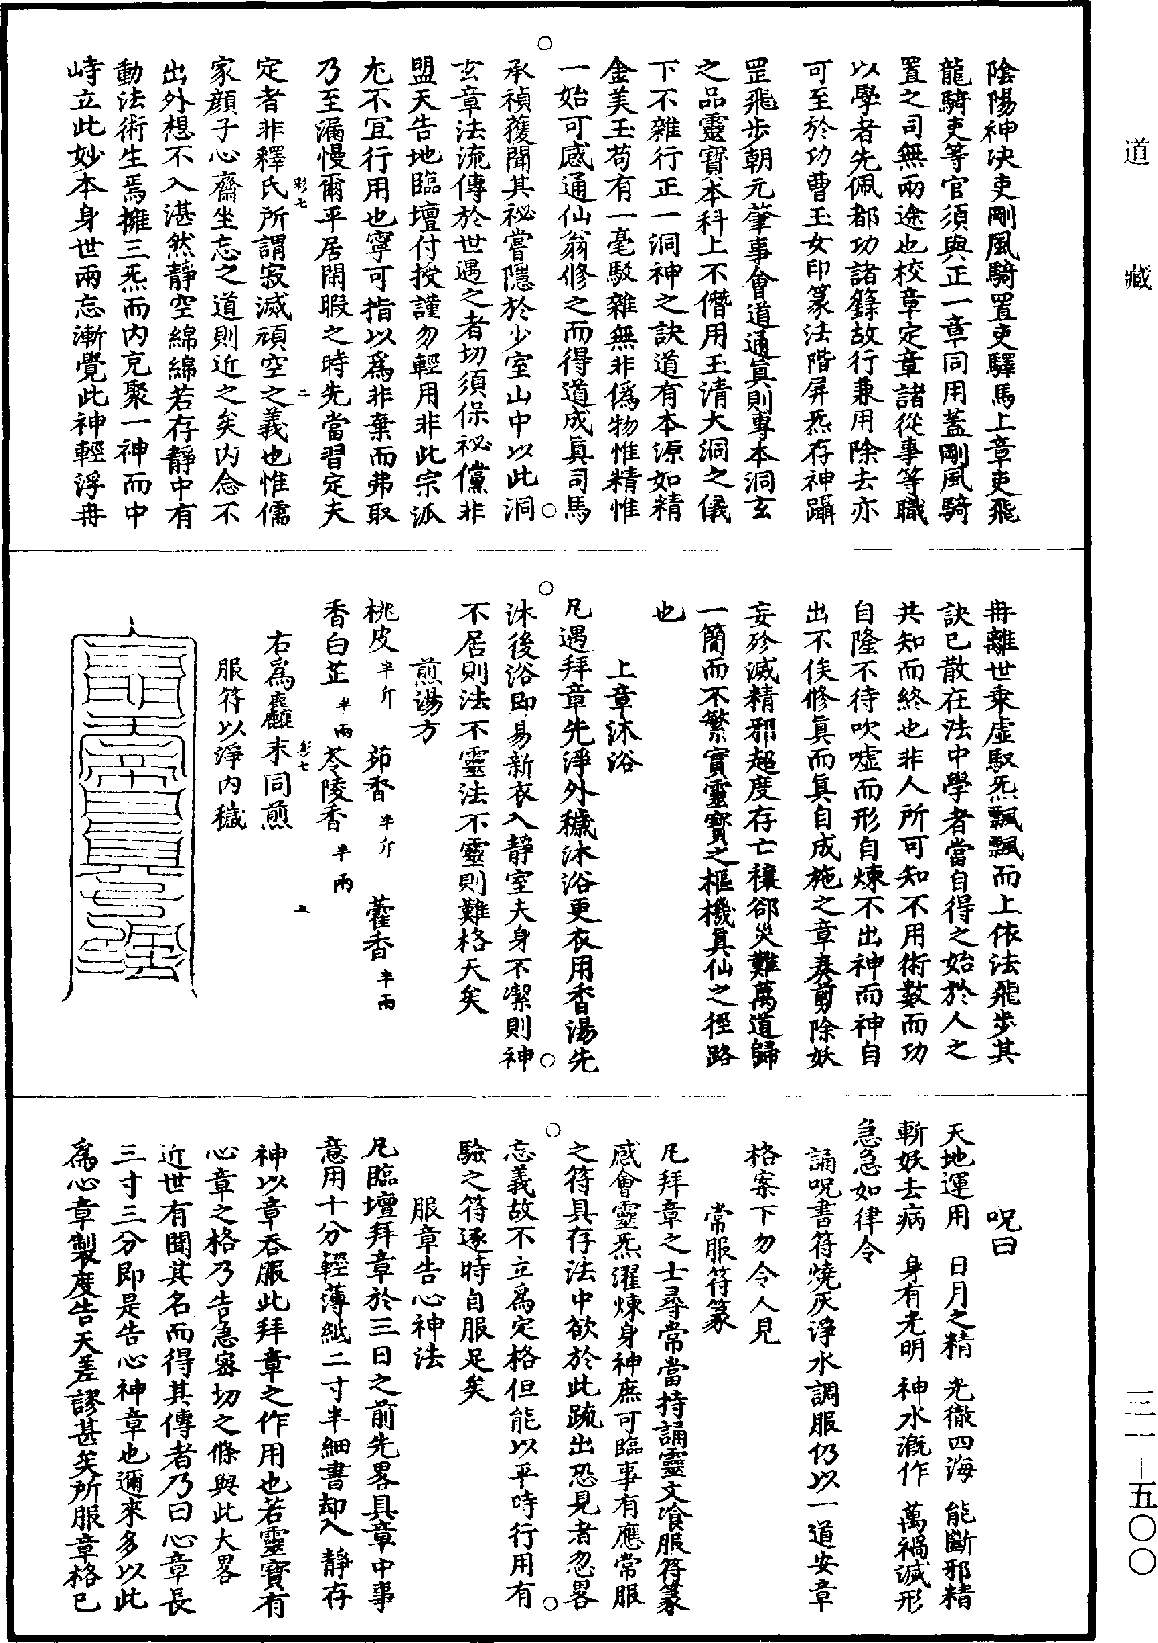 道藏
三一－五〇〇
陰陽神决吏剛風騎置吏驛馬上章吏飛
龍騎吏等官須與正一章同用蓋剛風騎
置之司無兩途也校章定章諸從事等職
以學者先佩都功諸籙故行兼用除去亦
可至於功曹玉女印篆法階屏炁存神躡
罡飛步朝元肇事會道通真則專本洞玄
之品靈寶本科上不僭用玉清大洞之儀
下不雜行正一洞神之訣道有本源如精
金美玉苟有一毫駁雜無非僞物惟精惟
一始可感通仙翁修之而得道成真司馬
承禎獲開其祕嘗隱於少室山中以此洞
玄章法流傳於世遇之者切須保祕儻非
盟天告地臨壇付授謹勿輕用非此宗派
尤不宜行用也寧可指以爲非棄而弗取
乃至漏慢爾平居閑暇之時先當習定夫
定者非釋氏所謂寂滅頑空之義也惟儒
家顔子心齋坐忘之道則近之矣内念不
出外想不入湛然靜空綿綿若存靜中有
動法術生焉擁三炁而内充聚一神而中
峙立此妙本身世兩忘漸覺此神輕浮冉
冉離世乘虛馭炁飄飄而上依法飛步其
訣已散在法中學者當自得之始於人之
共知而終也非人所可知不用術數而功
自隆不待吹噓而形自煉不出神而神自
出不俟修真而真自成施之章奏剪除妖
妄殄滅精邪超度存亡禳郤災難萬道歸
一簡而不繁實靈寶之樞機真仙之徑路
也
上章沐浴
凡遇拜章先淨外穢沐浴更衣用香湯先
沐後浴即易新衣入靜室夫身不潔則神
不居則法不靈法不靈則難格天矣
煎湯方
桃皮半斤 茆香半斤 藿香半兩
香白芷半兩 苓陵香半兩
右爲麤末同煎
服符以淨内穢
呪曰
天地運用 日月之精 光徹四海 能斷邪精
斬妖去病 身有光明 神水漑作 萬禍滅形
急急如律令
誦呪書符燒灰淨水調服仍以一道安章
格案下勿令人見
常服符篆
凡拜章之士尋常當持誦靈文飡服符篆
感會靈炁濯煉身神庶可臨事有應常服
之符具存法中欲於此疏出恐見者忽畧
忘義故不立爲定格但能以平時行用有
驗之符逐時自服足矣
服章告心神法
凡臨壇拜章於三日之前先畧具章中事
意用十分輕薄紙二寸半細書却入靜存
神以章吞服此拜章之作用也若靈寶有
心章之格乃告急密切之條與此大畧
近世有聞其名而得其傳者乃曰心章長
三寸三分即是告心神章也邇來多以此
爲心章製度告天差謬甚矣所服章格已